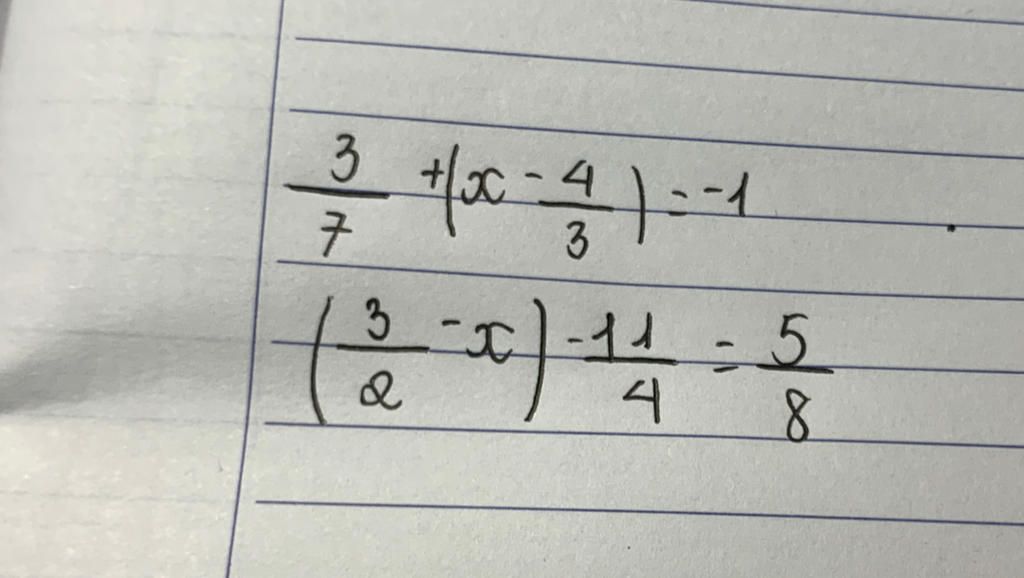 3/7 + (x - 4/3) = -1
(3/2 - x) - 11/4 = 5/8